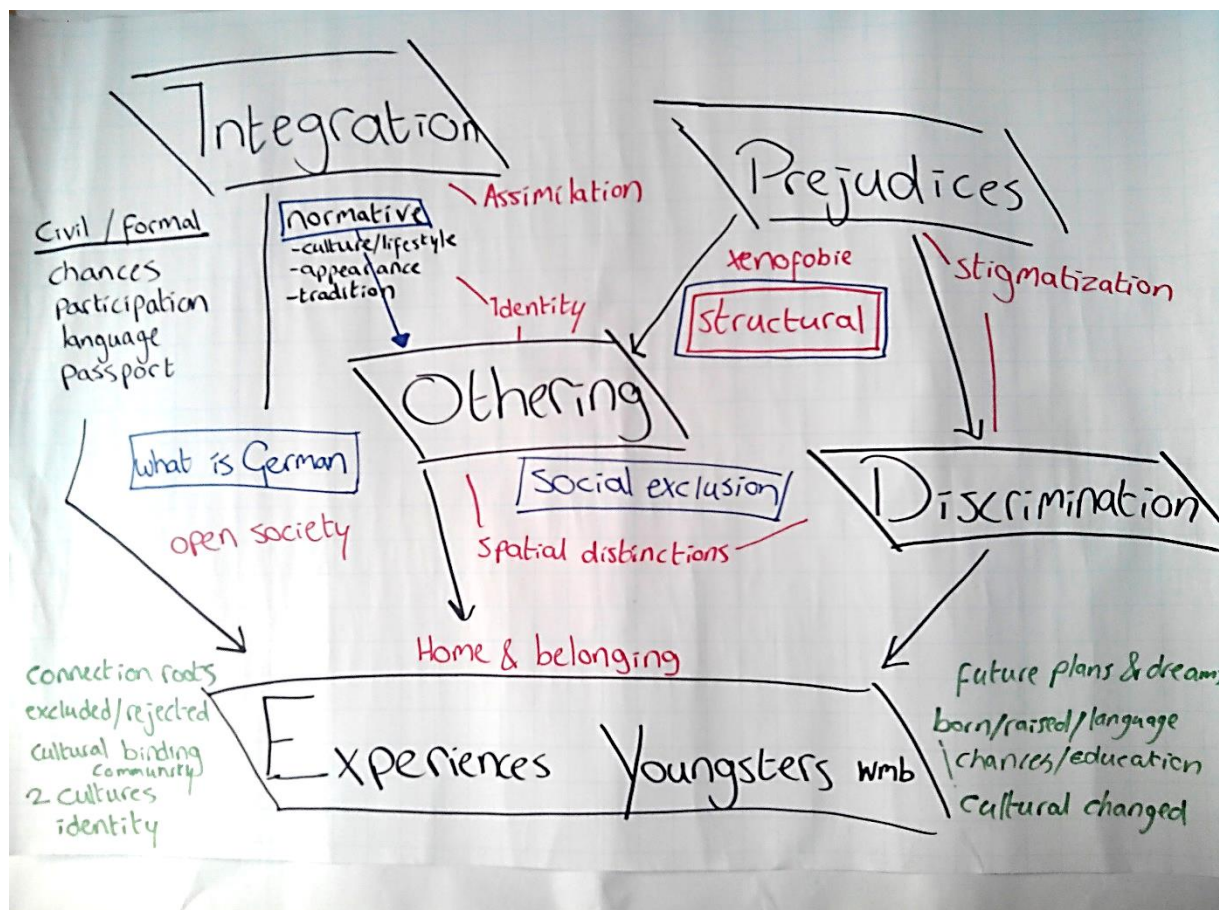 Integration
Prejudices
Assimilation
Civil / formal
chances
participation
language
passport
normative
-culture/lifestyle
-appearance
-tradition
Identity
xenofobie
structural
stigmatization
Othering
what is German
open society
social exclusion
spatial distinctions
Discrimination
Home & belonging
connection roots
excluded/rejected
cultural binding
community
2 cultures
identity
Experiences Youngsters wmb
future plans & dreams
born/raised/language
chances/education
cultural changed